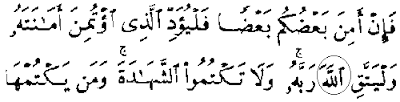 فَإِنْ أَمِنَ بَعْضُكُم بَعْضًا فَلْيُؤَدِّ ٱلَّذِى ٱؤْتُمِنَ أَمَٰنَتَهُۥ
وَلْيَتَّقِ ٱللَّهَ رَبَّهُۥ ۗ وَلَا تَكْتُمُوا۟ ٱلشَّهَٰدَةَ ۚ وَمَن يَكْتُمْهَا